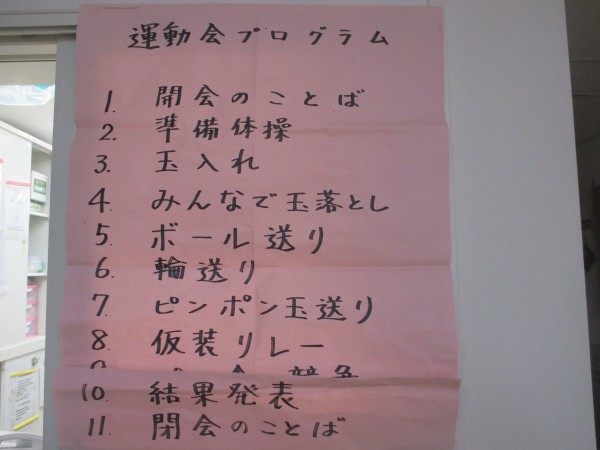 運動会プログラム
1. 開会のことば
2. 準備体操
3. 玉入れ
4. みんなで玉落とし
5. ボール送り
6. 輪送り
7. ピンポン玉送り
8. 仮装リレー
10. 結果発表
11. 閉会のことば